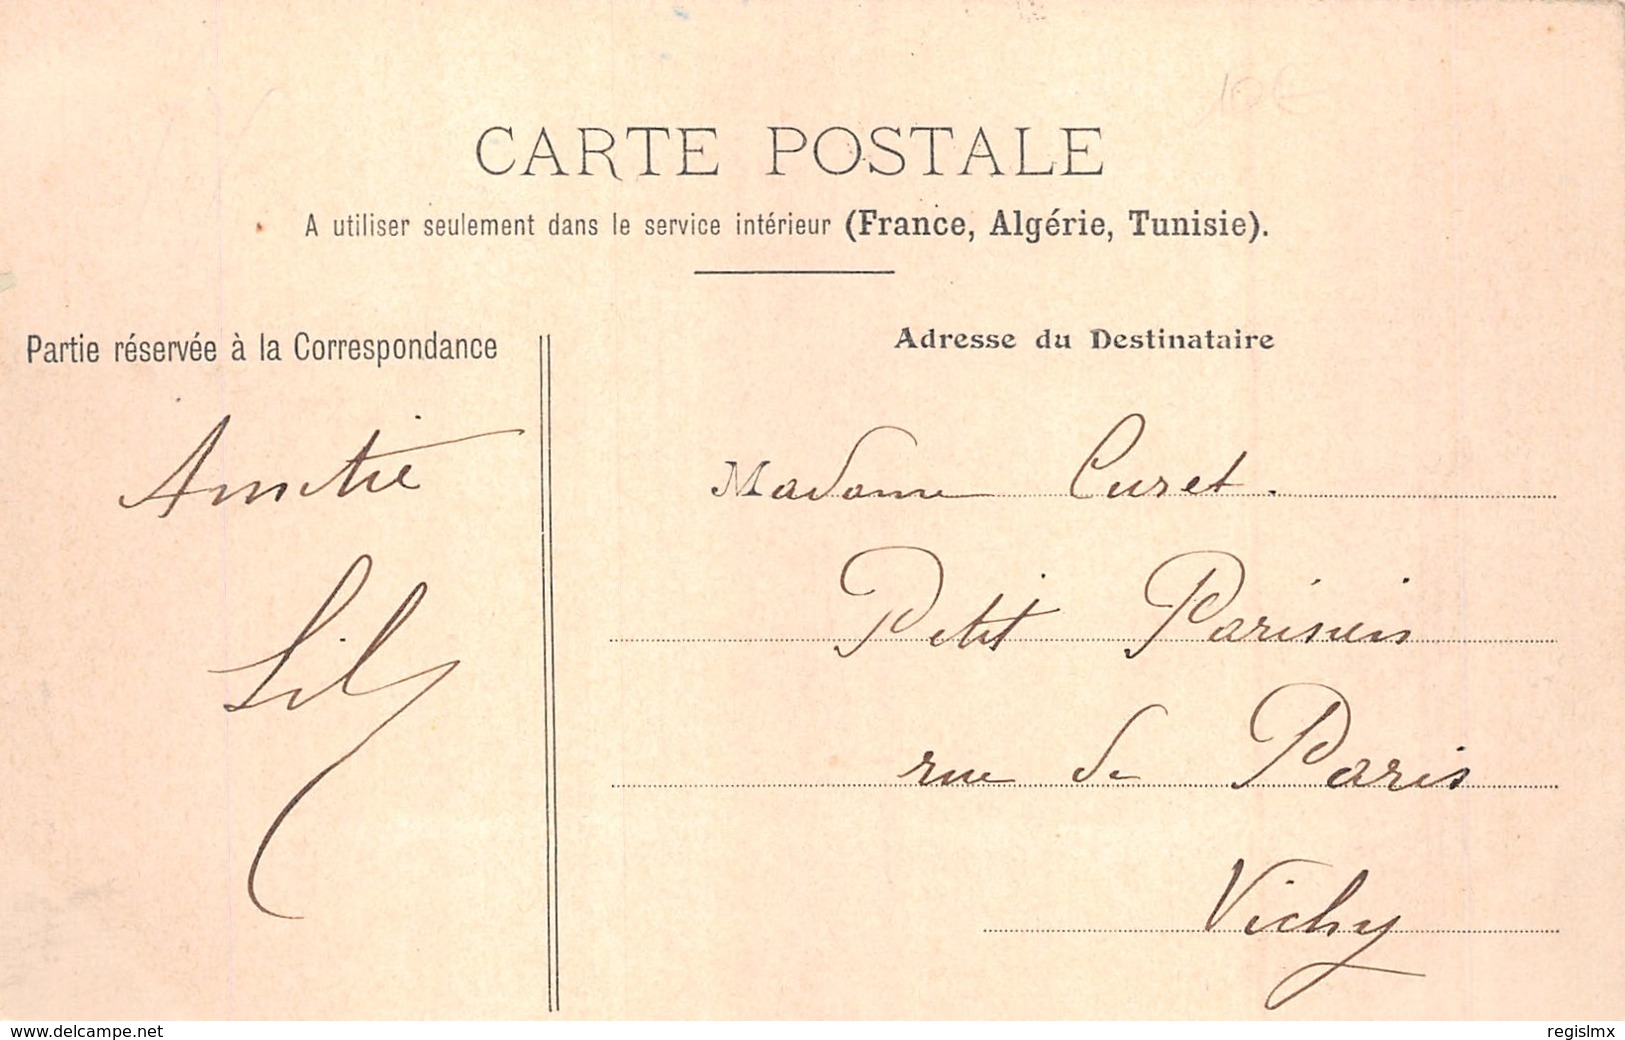 10€
CARTE POSTALE
A utiliser seulement dans le service intérieur (France, Algérie, Tunisie).
Partie réservée à la Correspondance
Adresse du Destinataire
Amitié
Lily
Madame Curet.
Petit Parisien
rue de Paris
Vichy
www.delcampe.net
regislmx